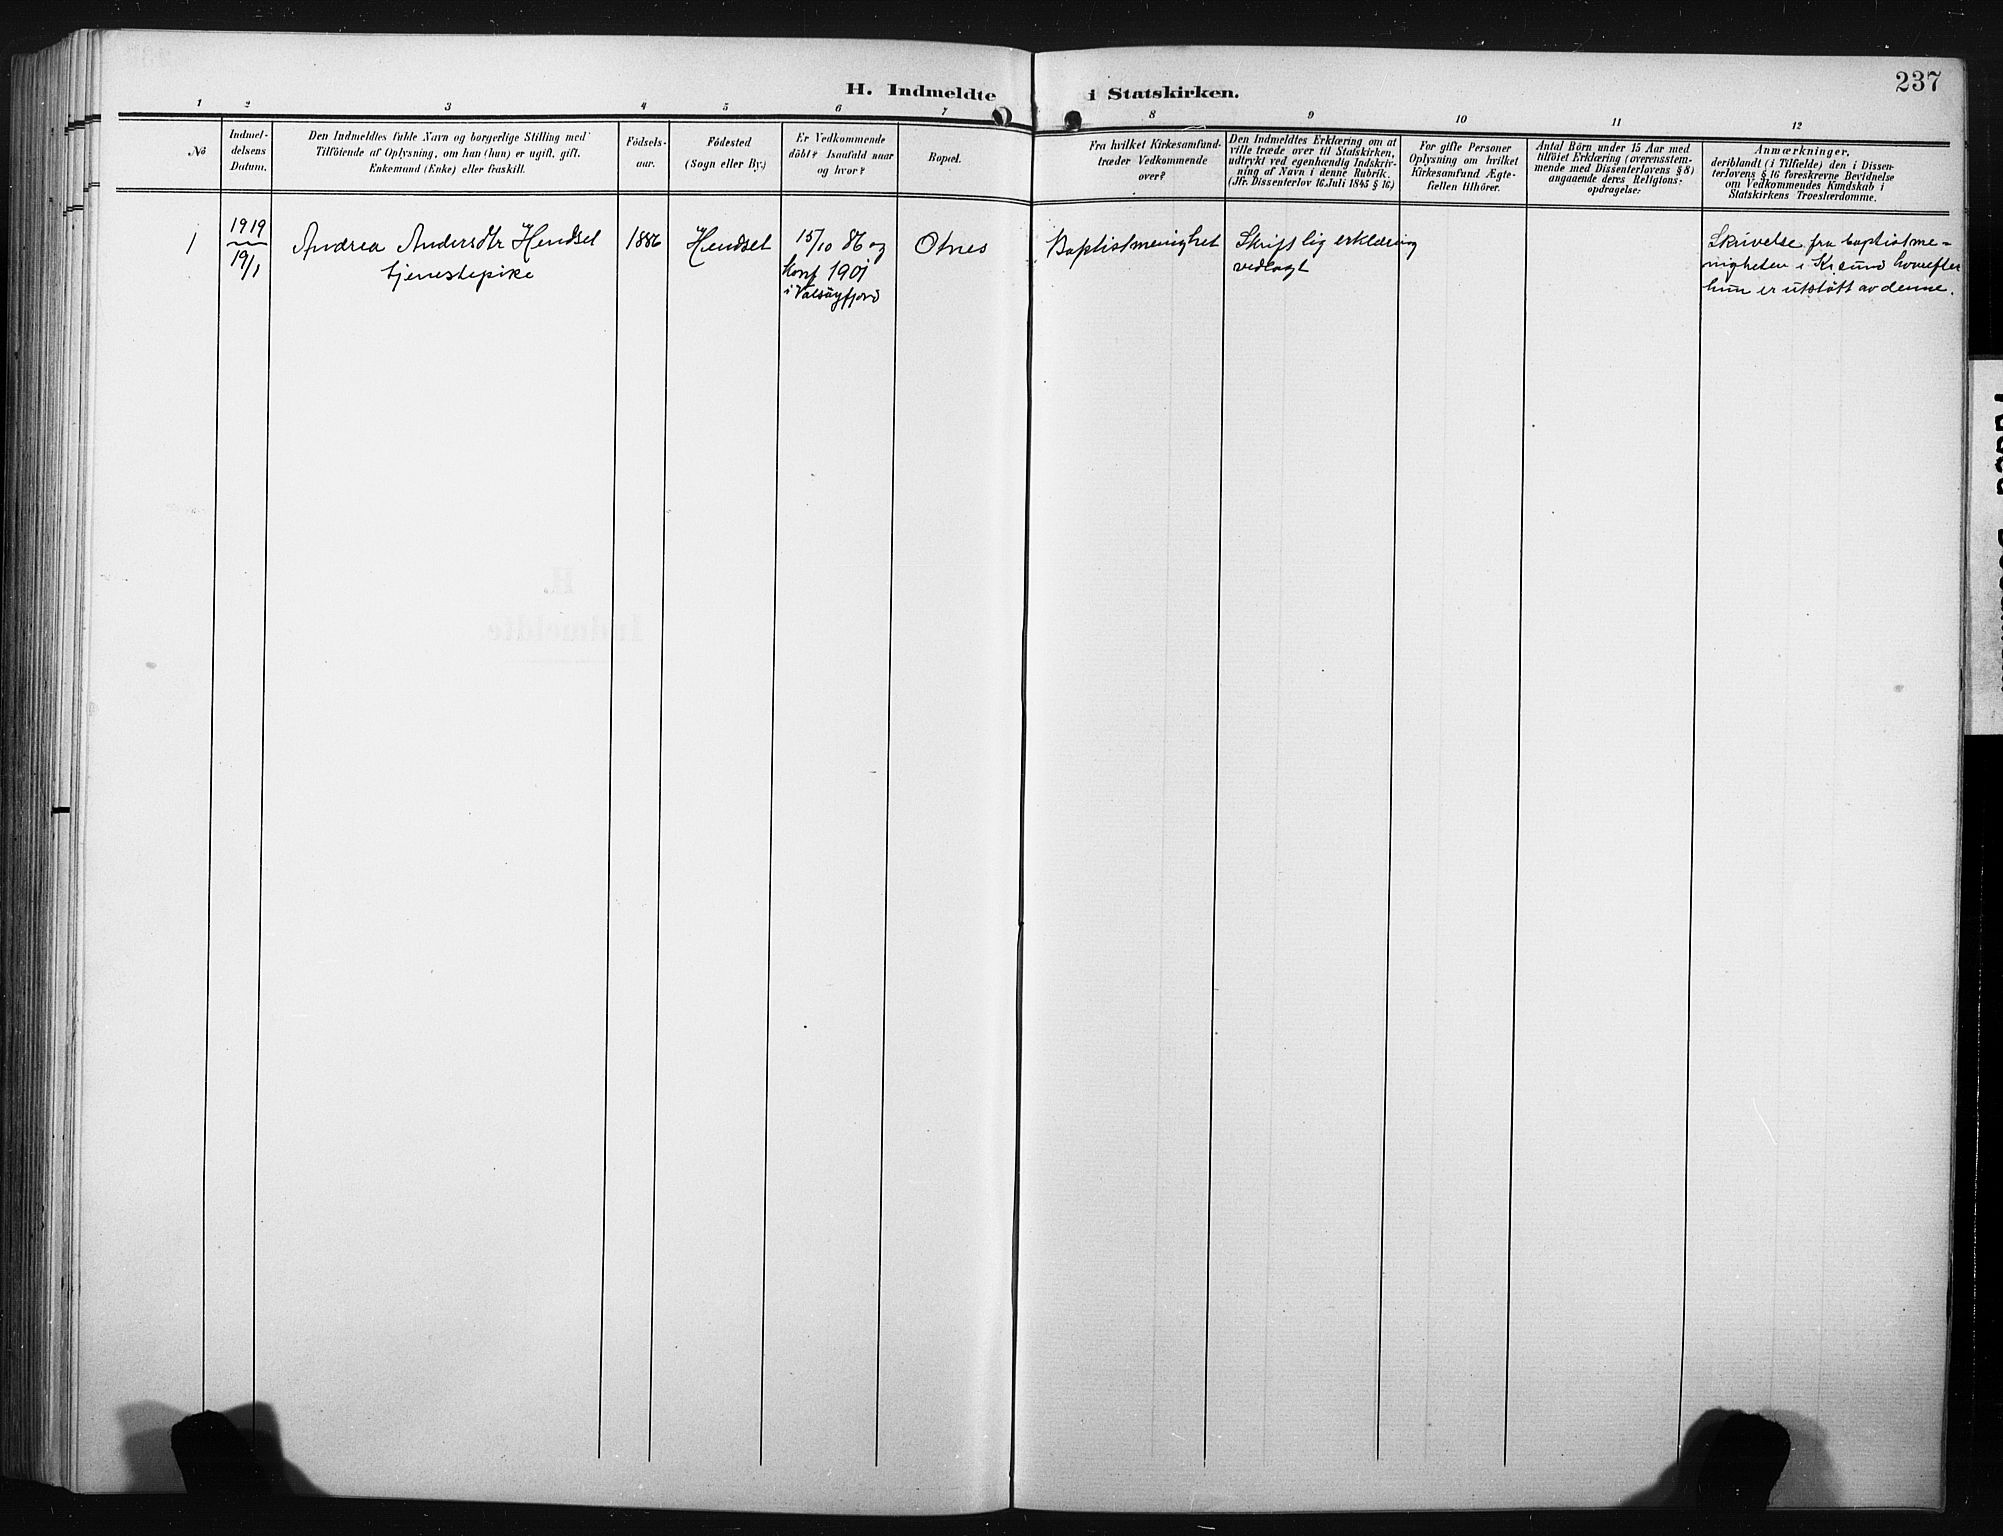 237
H. Indmeldte i Statskirken.
1 2 3 4 5 6 7 8 9 10 11 12
No
Indmel-
delsens
Datum.
Den Indmeldtes fulde Navn og borgerlige Stilling med
Tilföiende af Oplysning, om han (hun) er ugift, gift.
Enkemand (Enke) eller fraskilt.
Födsels-
aar.
Födested
(Sogn eller By.)
Er Vedkommende
döbt? Isaafald naar
og hvor?
Bopæl.
Fra hvilket Kirkesamfund.
træder Vedkommende
over?
Den Indmeldtes Erklæring om at
ville træde over til Statskirken,
udtrykt ved egenhændig Indskriv-
ning af Navn i denne Rubrik.
(Jfr. Dissenterlov 16 Juli 1845 § 16)
For gifte Personer
Oplysning om hvilket
Kirkesamfund Ægte-
fællen tilhörer.
Antal Börn under 15 Aar med
tilföiet Erklæring (overensstem-
mende med Dissenterlovens § 8)
angaaende deres Religions-
opdragelse.
Anmærkninger,
deriblandt (i Tilfælde) den i Dissen-
terlovens § 16 foreskrevne Bevidnelse
om Vedkommendes Kundskab i
Statskirkens Troeslærdomme.
1
1919
19/1
Andrea Andersdtr Hendset
tjenestepike
1886
Hendset
15/10 86 og
konf 1901
i Valsøyfjord
Otnes
Baptistmenighet
Skriftlig erklæring
vedlagt
Skrivelse fra baptistme-
nigheten i Kr.sund hvorefter
hun er utstøtt av denne.
H.
Indmeldte.